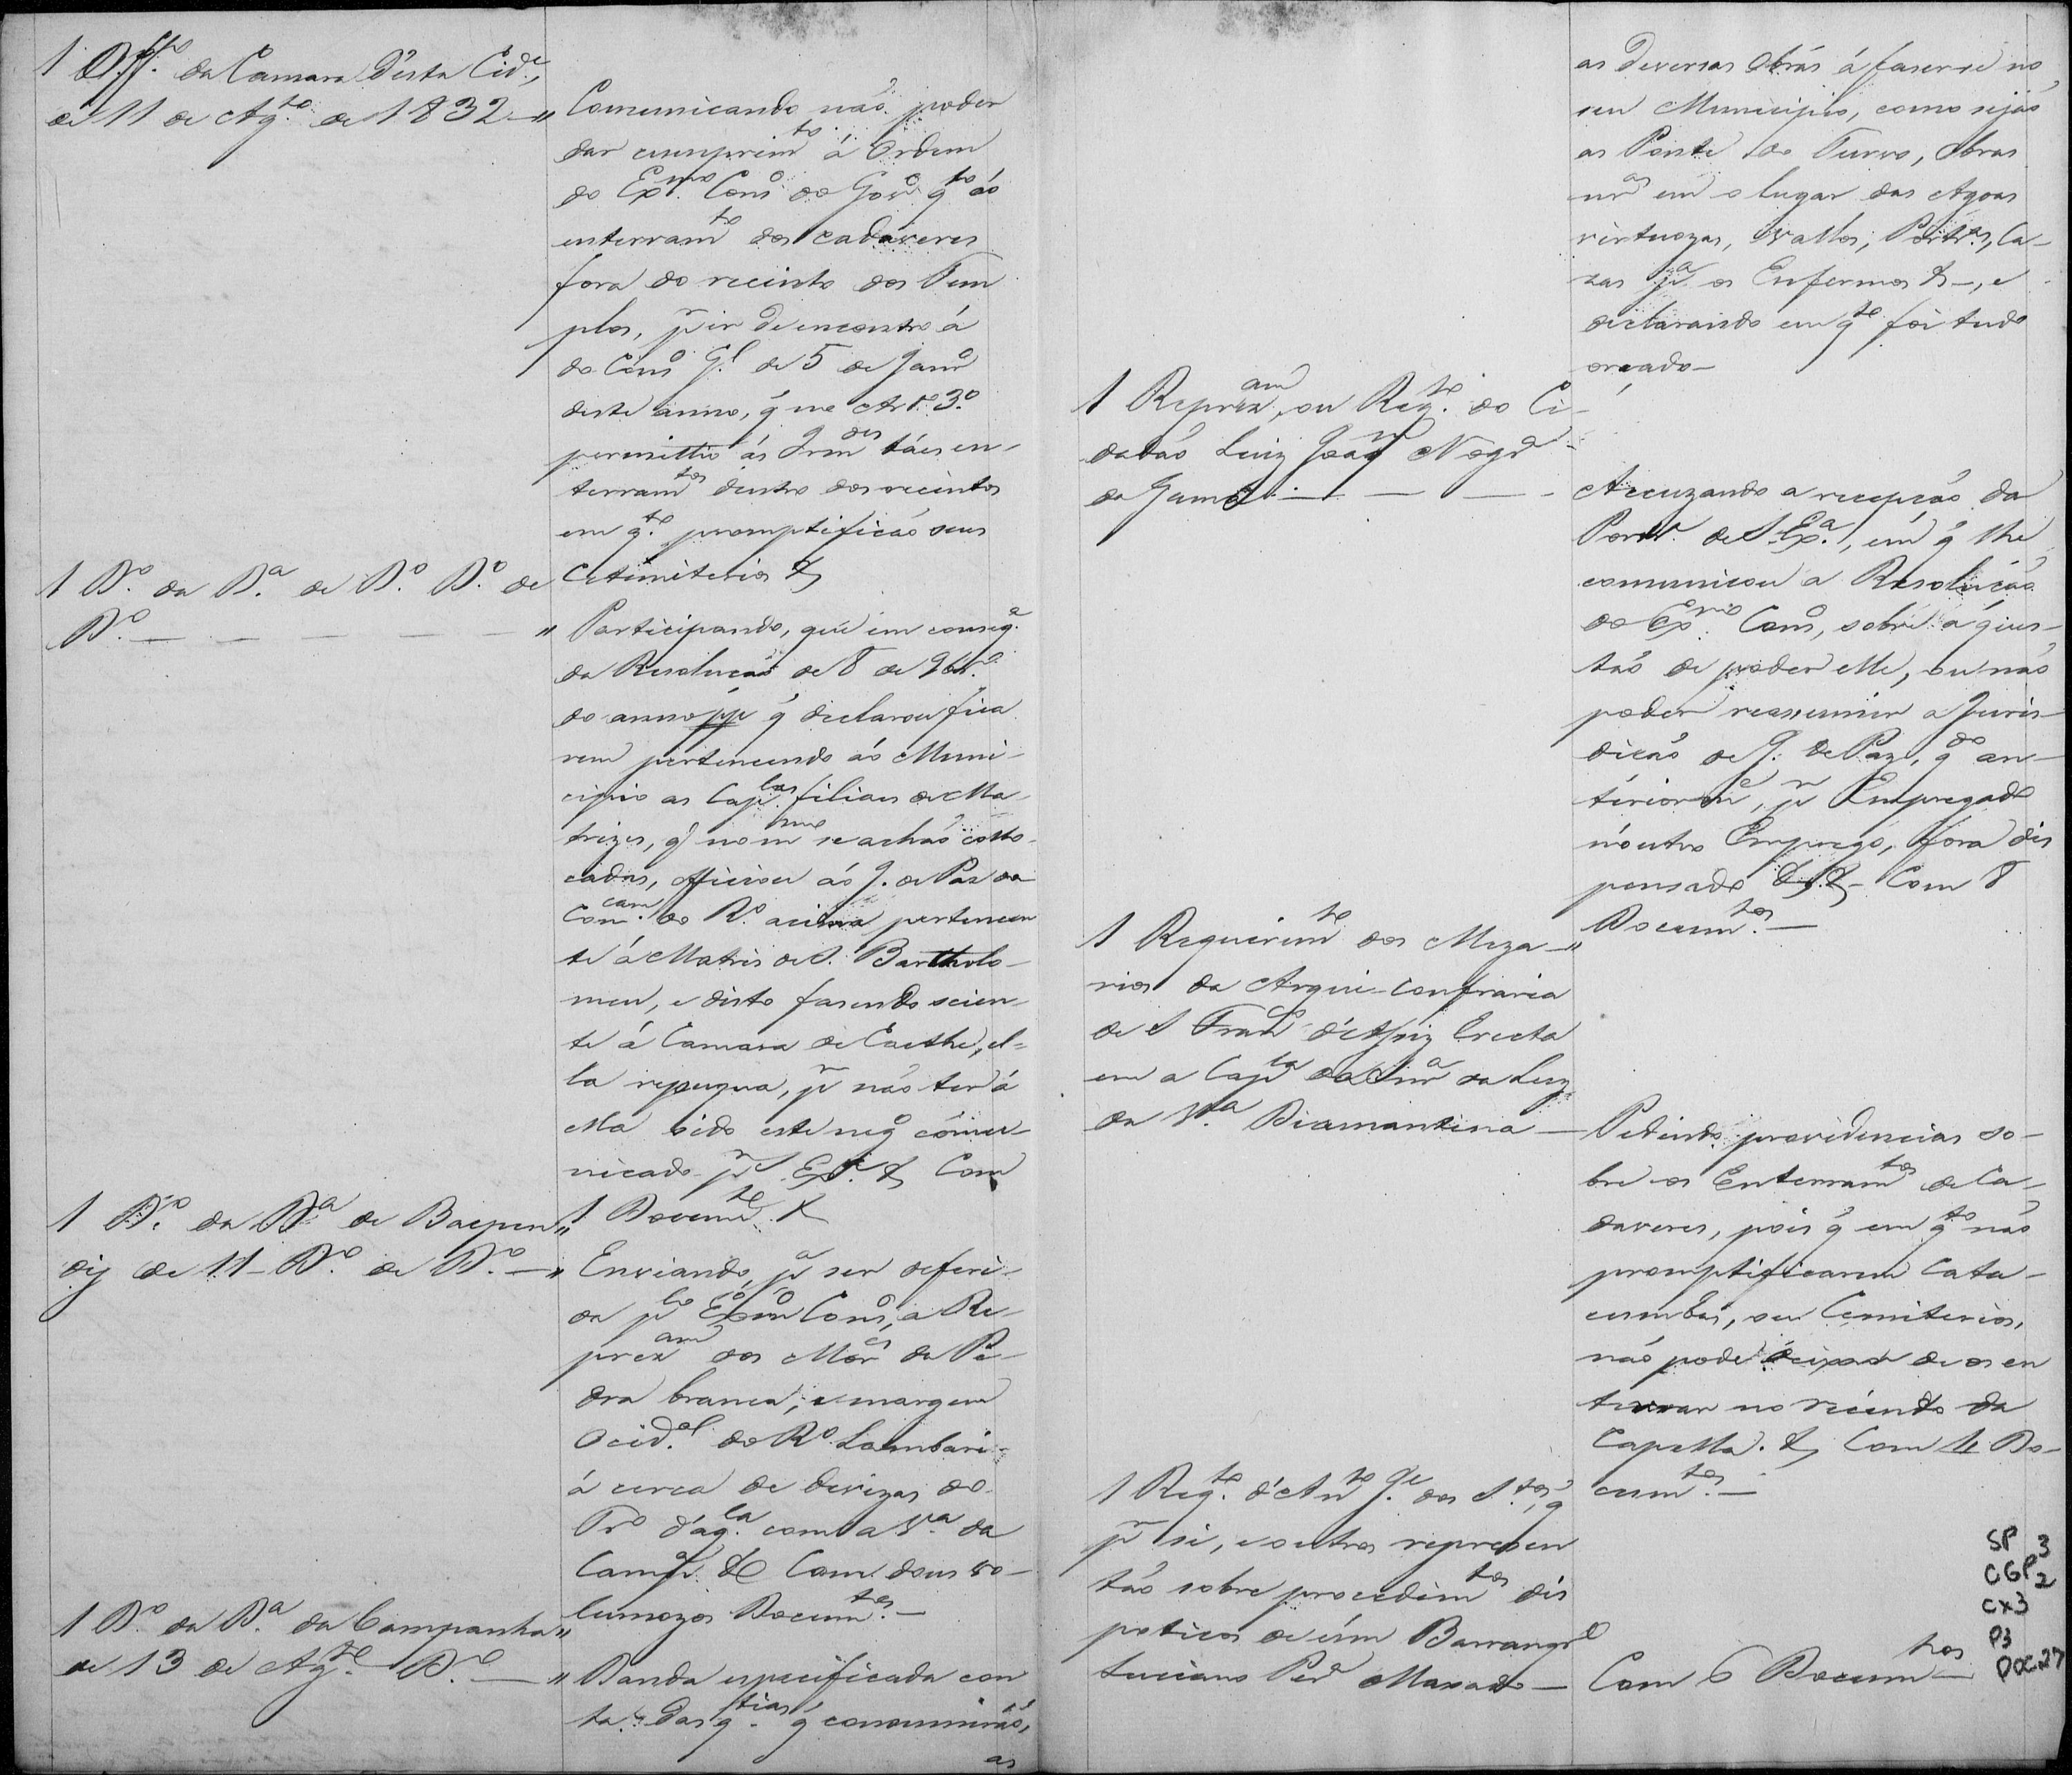 1 Off.º da Camara d'esta Cid.e,
de 11 de Ag.to de 1832 — "
Comunicando não poder
dar cumprim.to á Ordem
do Ex.mo Cons.º do Gov.º q.to ao
enterram.to dos cadaveres
fora do recinto dos Tem
plos, p.r ir de encontro á
do Cons.º G.l de 5 de Janr.º
deste anno, q̃ no Art.º 3.º
permittio ás Irm.des táes en-
terram.tos dentro dos recintos
em q.to promptificão seus
Cetimiterios &
1 D.º da D.ª de D.º D.º de
D.º — — — — — "
Participando, que em conseq.ª
da Resolução de 8 de 9br.º
do anno pp q̃ declarou fica
rem pertencendo ao Muni-
cipio as Cap.las filiaes de Ma-
trizes, q̃ no m.mo se achão collo-
cadas, officiou ao J. de Paz da
Com.cam do R.º acima pertencen
te á Matris de S. Bartholo-
meu, e disto fasendo scien-
te á Camara de Caethe, el=
la repugna, p.r não ter á
ella sido este neg.º comu-
nicado p.r S. Ex.ª & Com
1 Docum.to &
1 D.º da D.ª de Baepen "
dij de 11 D.º de D.º — "
Enviando, p.ª ser deferi-
da p.lo Ex.mo Cons.º, a Re-
prez.am dos Mor.es da Pe-
dra branca, e margem
Ocid.al do R.º Lambari-
á cerca de divizas do
Tr.º d'aq.la com a V.ª da
Camp.ª & Com dous vo-
lumozos Docum.tos —
1 D.º da D.ª da Campanha "
de 13 de Ag.to D.º — "
Danda especificada con
ta das q.tias q̃ consumirão,
as
as diversas Obras á faser-se no
seu Municipio, como sejão
as Ponte do Turvo, Obras
em o lugar das Agoas
virtuozas, Vallos, Ca-
zas p.ª os Enfermos & —, e
declarando em q.to foi tudo
orçado —
1 Reprez.am, ou Req.to do Ci-
dadão Luiz Joaq.m Nogr.ª
da Gama — — — -
Accuzando a recepção da
Port.ª de S. Ex.ª, em q̃ lhe
comunicou a Resolução
do Ex.mo Cons.º, sobre a ques-
tão de poder elle, ou não
poder reassumir a Juris-
dicão de J. de Paz, q.do an-
teriorm.e, p.r Empregado
n'outro Emprego, fora dis
pensado &. &— Com 8
Docum.tos —
1 Requerim.to dos Meza- "
rios da Arqui-confraria
de S Fran.co d'Assiz Erecta
em a Cap.la da Snr.ª da Luz
da V.ª Diamantina —
Pedindo providencias so-
bre os Enterram.tos de Ca-
daveres, pois q̃ em q.to não
promptificarem Cata-
cumbas, ou Cemiterios,
não pode deixar de os en
terrar no recinto da
Capella. & Com 4 Do-
cum.tos —
1 Req.to d'Ant.º J.e dos S.tos, q̃
p.r si, e outros represen
tão sobre procedim.tos dis
poticos de úm
Luciano Per.ª Maxado —
Com 6 Docum.tos —
SP 3
CGP2
CX3
P3
DOC27